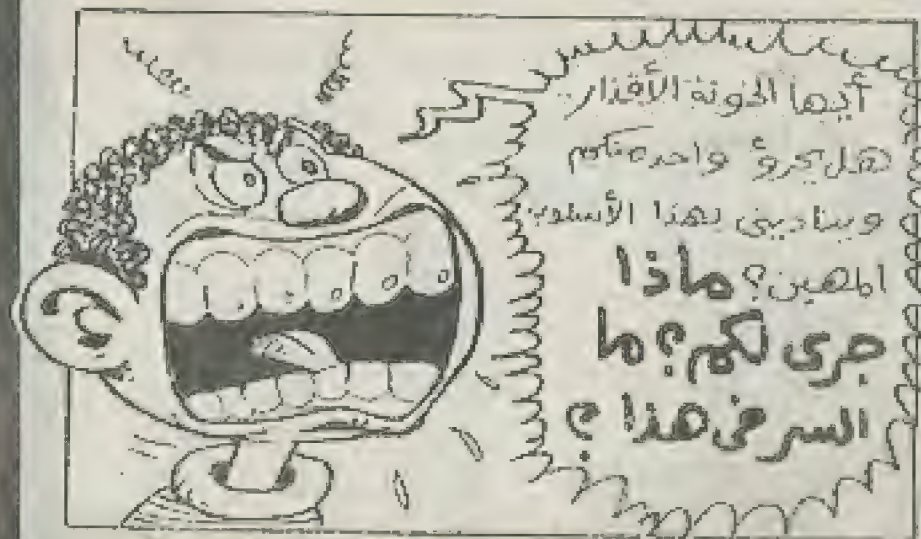 أيها الخونة الأقذار
هل يجرؤ واحد منكم
ويناديني بهذا الأسلوب
المهين؟ ماذا
جرى لكم؟ ما
السر في هذا؟